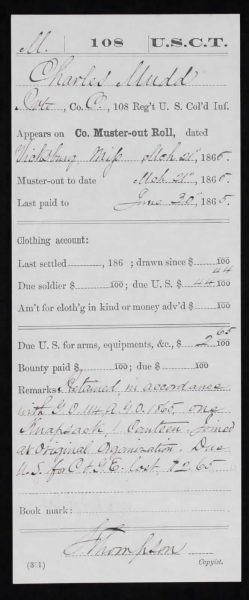 M. | 108 | U.S.C.T.
Charles Mudd
Pvt, Co. C, 108 Reg't U. S. Col'd Inf.
Appears on Co. Muster-out Roll, dated
Vicksburg Miss Mch 21", 1866.
Muster-out to date Mch 21", 1866.
Last paid to June 30", 1865.
Clothing account:
Last settled, 186 ; drawn since $ 100
Due soldier $ 100; due U. S. $ 44 44/100
Am't for cloth'g in kind or money adv'd $ 100
Due U. S. for arms, equipments, &c., $ 2 65/100
Bounty paid $ 100; due $ 100
Remarks: Retained in accordance
with G.O. 114 A.G.O. 1865, one
Knapsack, 1 Canteen. Joined
at Original Organization. Due
U.S. for C & G.E. lost, $2.65
Book mark:
Thompson
(361) Copyist.